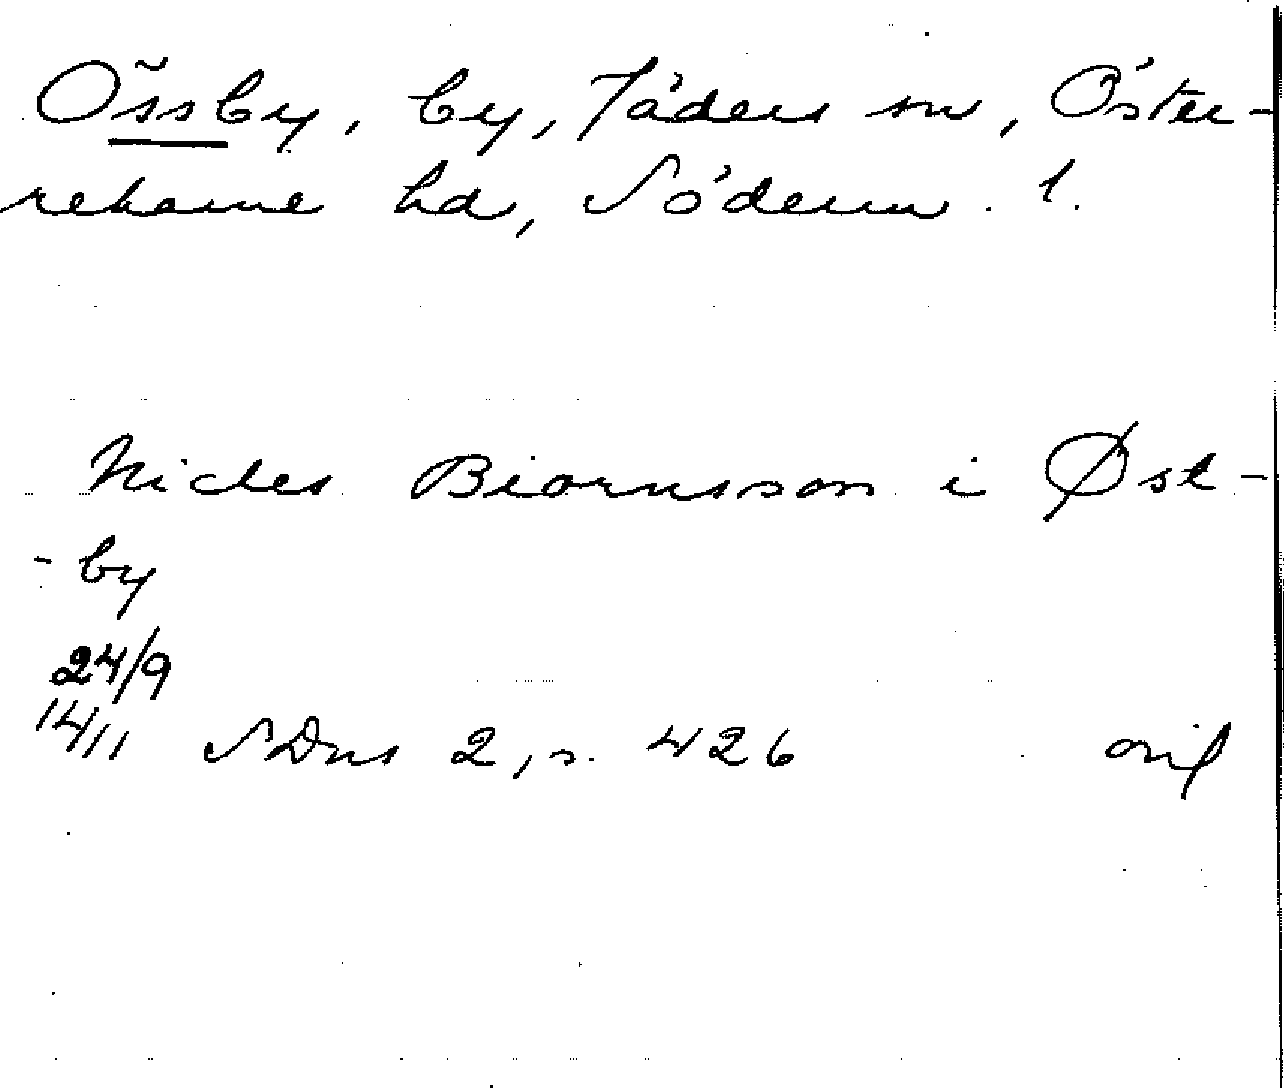 Össby, by, Jäders sn, Öster-
rekarne hd, Söderm. l.
Nicles Biornsson i Øst-
- by
24/9
14/11 SDns 2, s. 426 orig